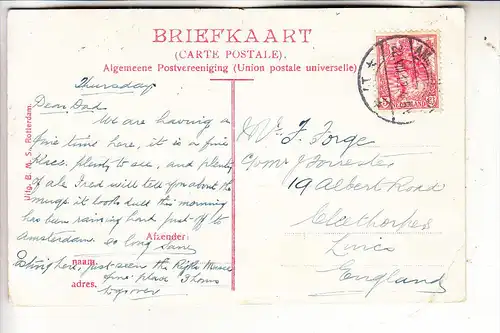 BRIEFKAART
(CARTE POSTALE).
Algemeene Postvereeniging (Union postale universelle)
Thursday
Dear Dad
We are having a
fine time here, it is a fine
place. plenty to see, and plenty
of ale. Fred will tell you about the
mugs. it looks dull this morning
has been raining hard. just off to
Amsterdam. so long
Afzender:
here, just seen the Rijks
naam. fine place 3 hours
adres. to go over
Uitg. B. M. S. Rotterdam.
Mr. F. Forge
J Forrester
19 Albert Road
Cleethorpes
Lincs
England
NEDERLAND